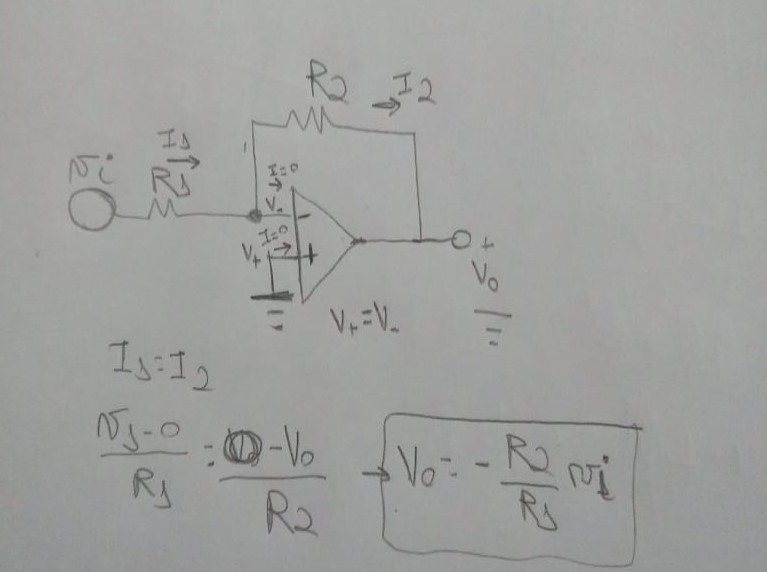 R2 → I2
I1 →
vi
R1
I=0 →
V-
-
I=0 →
V+
+
+
Vo
V+=V-
I1=I2
v1-0 / R1 = 0-Vo / R2 → Vo=- R2 / R1 vi